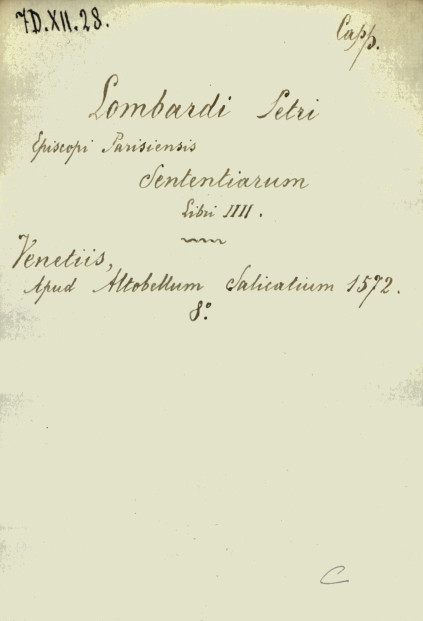 7D.XII.28.
Capp.
Lombardi Petri
Episcopi Parisiensis
Sententiarum
Libri IIII.
Venetiis,
Apud Altobellum Salicatium 1572.
8°.
C